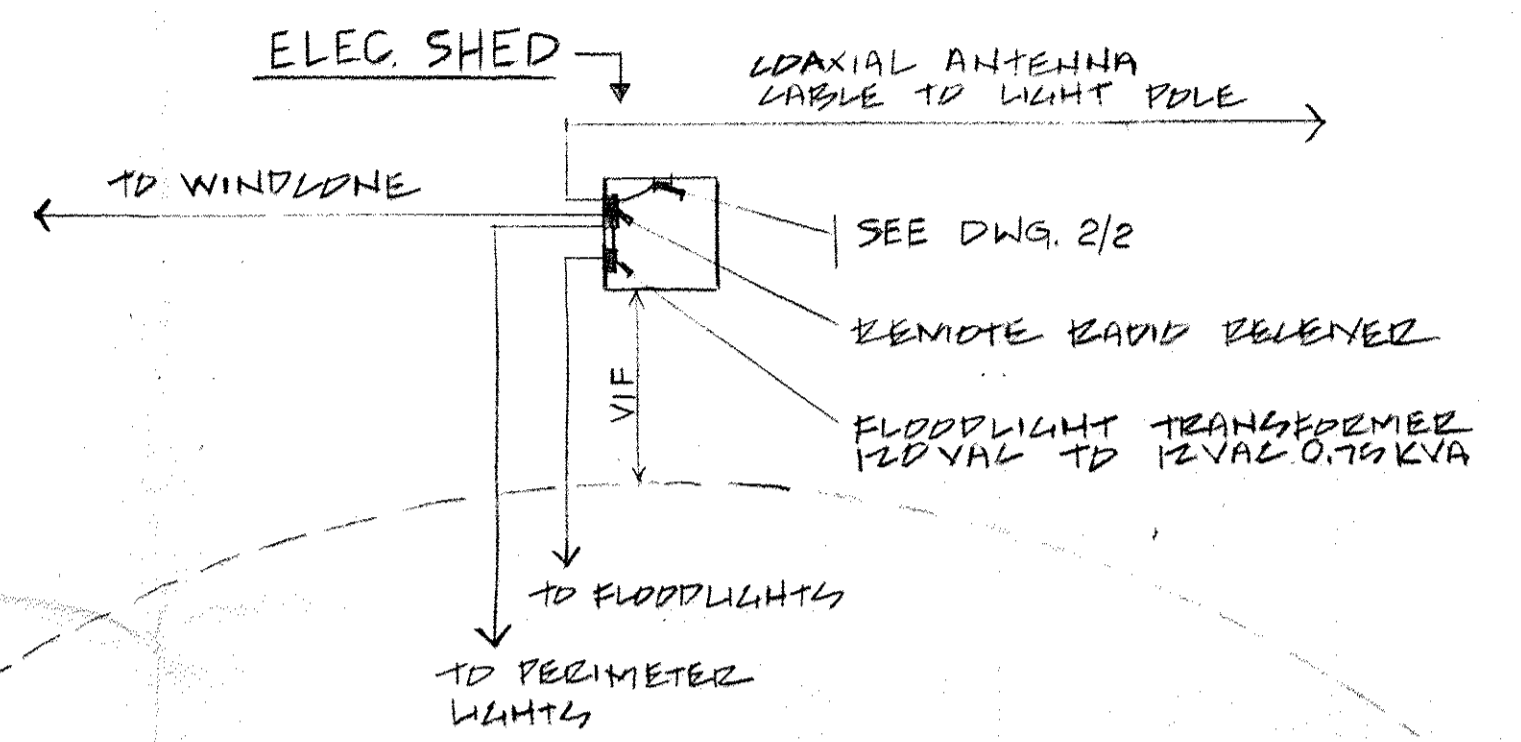 ELEC. SHED
COAXIAL ANTENNA
CABLE TO LIGHT POLE
TO WINDCONE
SEE DWG. 2/2
REMOTE RADIO RECEIVER
VIF
FLOODLIGHT TRANSFORMER
120 VAC TO 12 VAC 0.75 KVA
TO FLOODLIGHTS
TO PERIMETER
LIGHTS